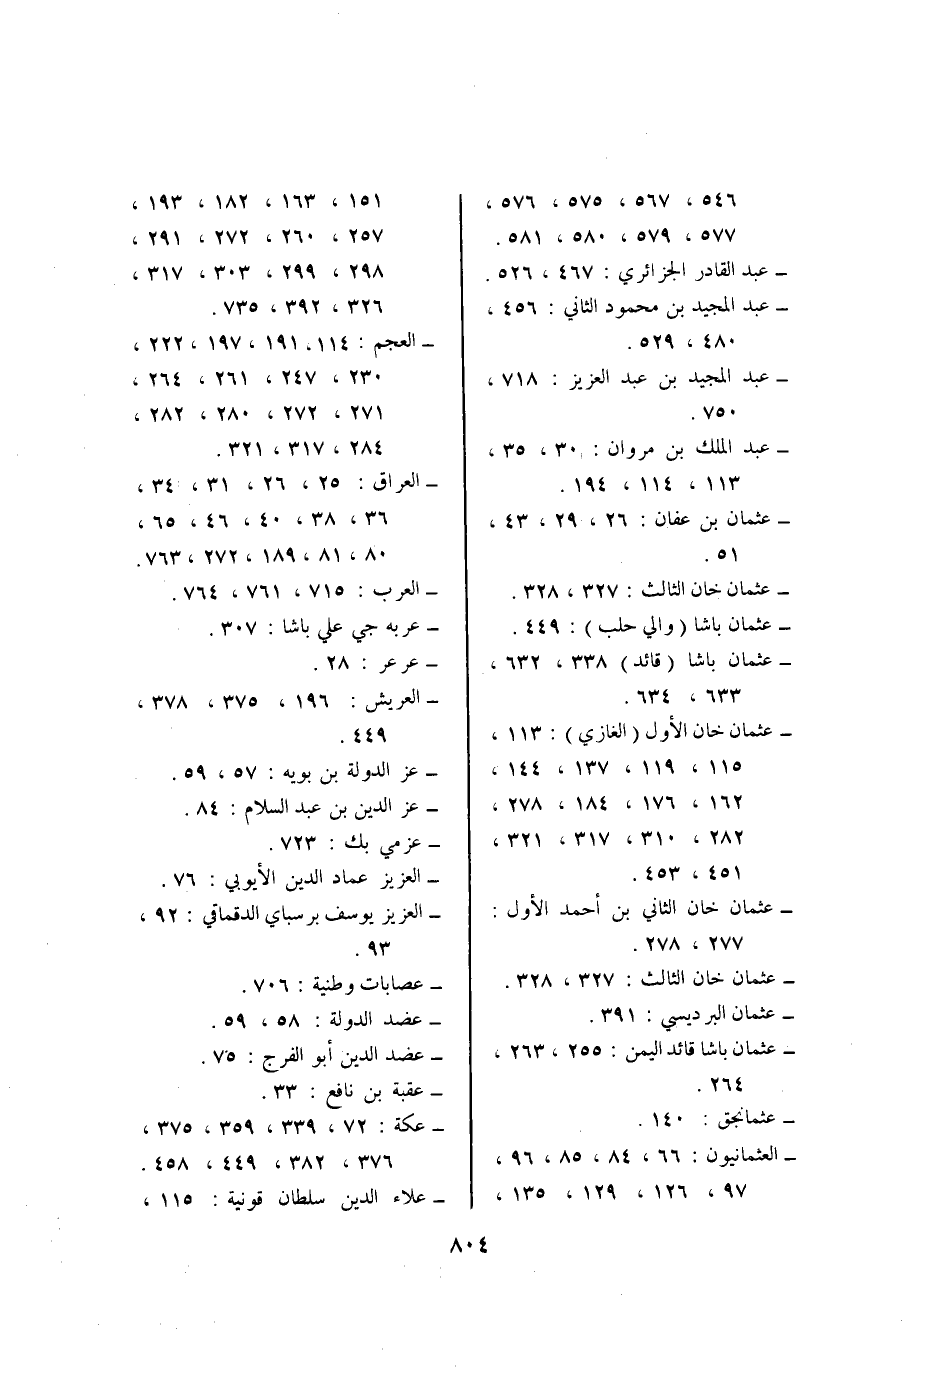 ٥٤٦ ، ٥٦٧ ، ٥٧٥ ، ٥٧٦ ،
٥٧٧ ، ٥٧٩ ، ٥٨٠ ، ٥٨١ .
ــ عبد القادر الجزائري : ٤٦٧ ، ٥٢٦ .
ــ عبد المجيد بن محمود الثاني : ٤٥٦ ،
٤٨٠ ، ٥٢٩ .
ــ عبد المجيد بن عبد العزيز : ٧١٨ ،
٧٥٠ .
ــ عبد الملك بن مروان : ٣٠ ، ٣٥ ،
١١٣ ، ١١٤ ، ١٩٤ .
ــ عثمان بن عفان : ٢٦ ، ٢٩ ، ٤٣ ،
٥١ .
ــ عثمان خان الثالث : ٣٢٧ ، ٣٢٨ .
ــ عثمان باشا ( والي حلب ) : ٤٤٩ .
ــ عثمان باشا ( قائد ) ٣٣٨ ، ٦٣٢ ،
٦٣٣ ، ٦٣٤ .
ــ عثمان خان الأول ( الغازي ) : ١١٣ ،
١١٥ ، ١١٩ ، ١٣٧ ، ١٤٤ ،
١٦٢ ، ١٧٦ ، ١٨٤ ، ٢٧٨ ،
٢٨٢ ، ٣١٠ ، ٣١٧ ، ٣٢١ ،
٤٥١ ، ٤٥٣ .
ــ عثمان خان الثاني بن أحمد الأول :
٢٧٧ ، ٢٧٨ .
ــ عثمان خان الثالث : ٣٢٧ ، ٣٢٨ .
ــ عثمان البرديسي : ٣٩١ .
ــ عثمان باشا قائد اليمن : ٢٥٥ ، ٢٦٣ ،
٢٦٤ .
ــ عثمانجق : ١٤٠ .
ــ العثمانيون : ٦٦ ، ٨٤ ، ٨٥ ، ٩٦ ،
٩٧ ، ١٢٦ ، ١٢٩ ، ١٣٥ ،
١٥١ ، ١٦٣ ، ١٨٢ ، ١٩٣ ،
٢٥٧ ، ٢٦٠ ، ٢٧٢ ، ٢٩١ ،
٢٩٨ ، ٢٩٩ ، ٣٠٣ ، ٣١٧ ،
٣٢٦ ، ٣٩٢ ، ٧٣٥ .
ــ العجم : ١١٤ ، ١٩١ ، ١٩٧ ، ٢٢٢ ،
٢٣٠ ، ٢٤٧ ، ٢٦١ ، ٢٦٤ ،
٢٧١ ، ٢٧٢ ، ٢٨٠ ، ٢٨٢ ،
٢٨٤ ، ٣١٧ ، ٣٢١ .
ــ العراق : ٢٥ ، ٢٦ ، ٣١ ، ٣٤ ،
٣٦ ، ٣٨ ، ٤٠ ، ٤٦ ، ٦٥ ،
٨٠ ، ٨١ ، ١٨٩ ، ٢٧٢ ، ٧٦٣ .
ــ العرب : ٧١٥ ، ٧٦١ ، ٧٦٤ .
ــ عربه جي علي باشا : ٣٠٧ .
ــ عرعر : ٢٨ .
ــ العريش : ١٩٦ ، ٣٧٥ ، ٣٧٨ ،
٤٤٩ .
ــ عز الدولة بن بويه : ٥٧ ، ٥٩ .
ــ عز الدين بن عبد السلام : ٨٤ .
ــ عزمي بك : ٧٢٣ .
ــ العزيز عماد الدين الأيوبي : ٧٦ .
ــ العزيز يوسف برسباي الدقماقي : ٩٢ ،
٩٣ .
ــ عصابات وطنية : ٧٠٦ .
ــ عضد الدولة : ٥٨ ، ٥٩ .
ــ عضد الدين أبو الفرج : ٧٥ .
ــ عقبة بن نافع : ٣٣ .
ــ عكة : ٧٢ ، ٣٣٩ ، ٣٥٩ ، ٣٧٥ ،
٣٧٦ ، ٣٨٢ ، ٤٤٩ ، ٤٥٨ .
ــ علاء الدين سلطان قونية : ١١٥ ،
٨٠٤